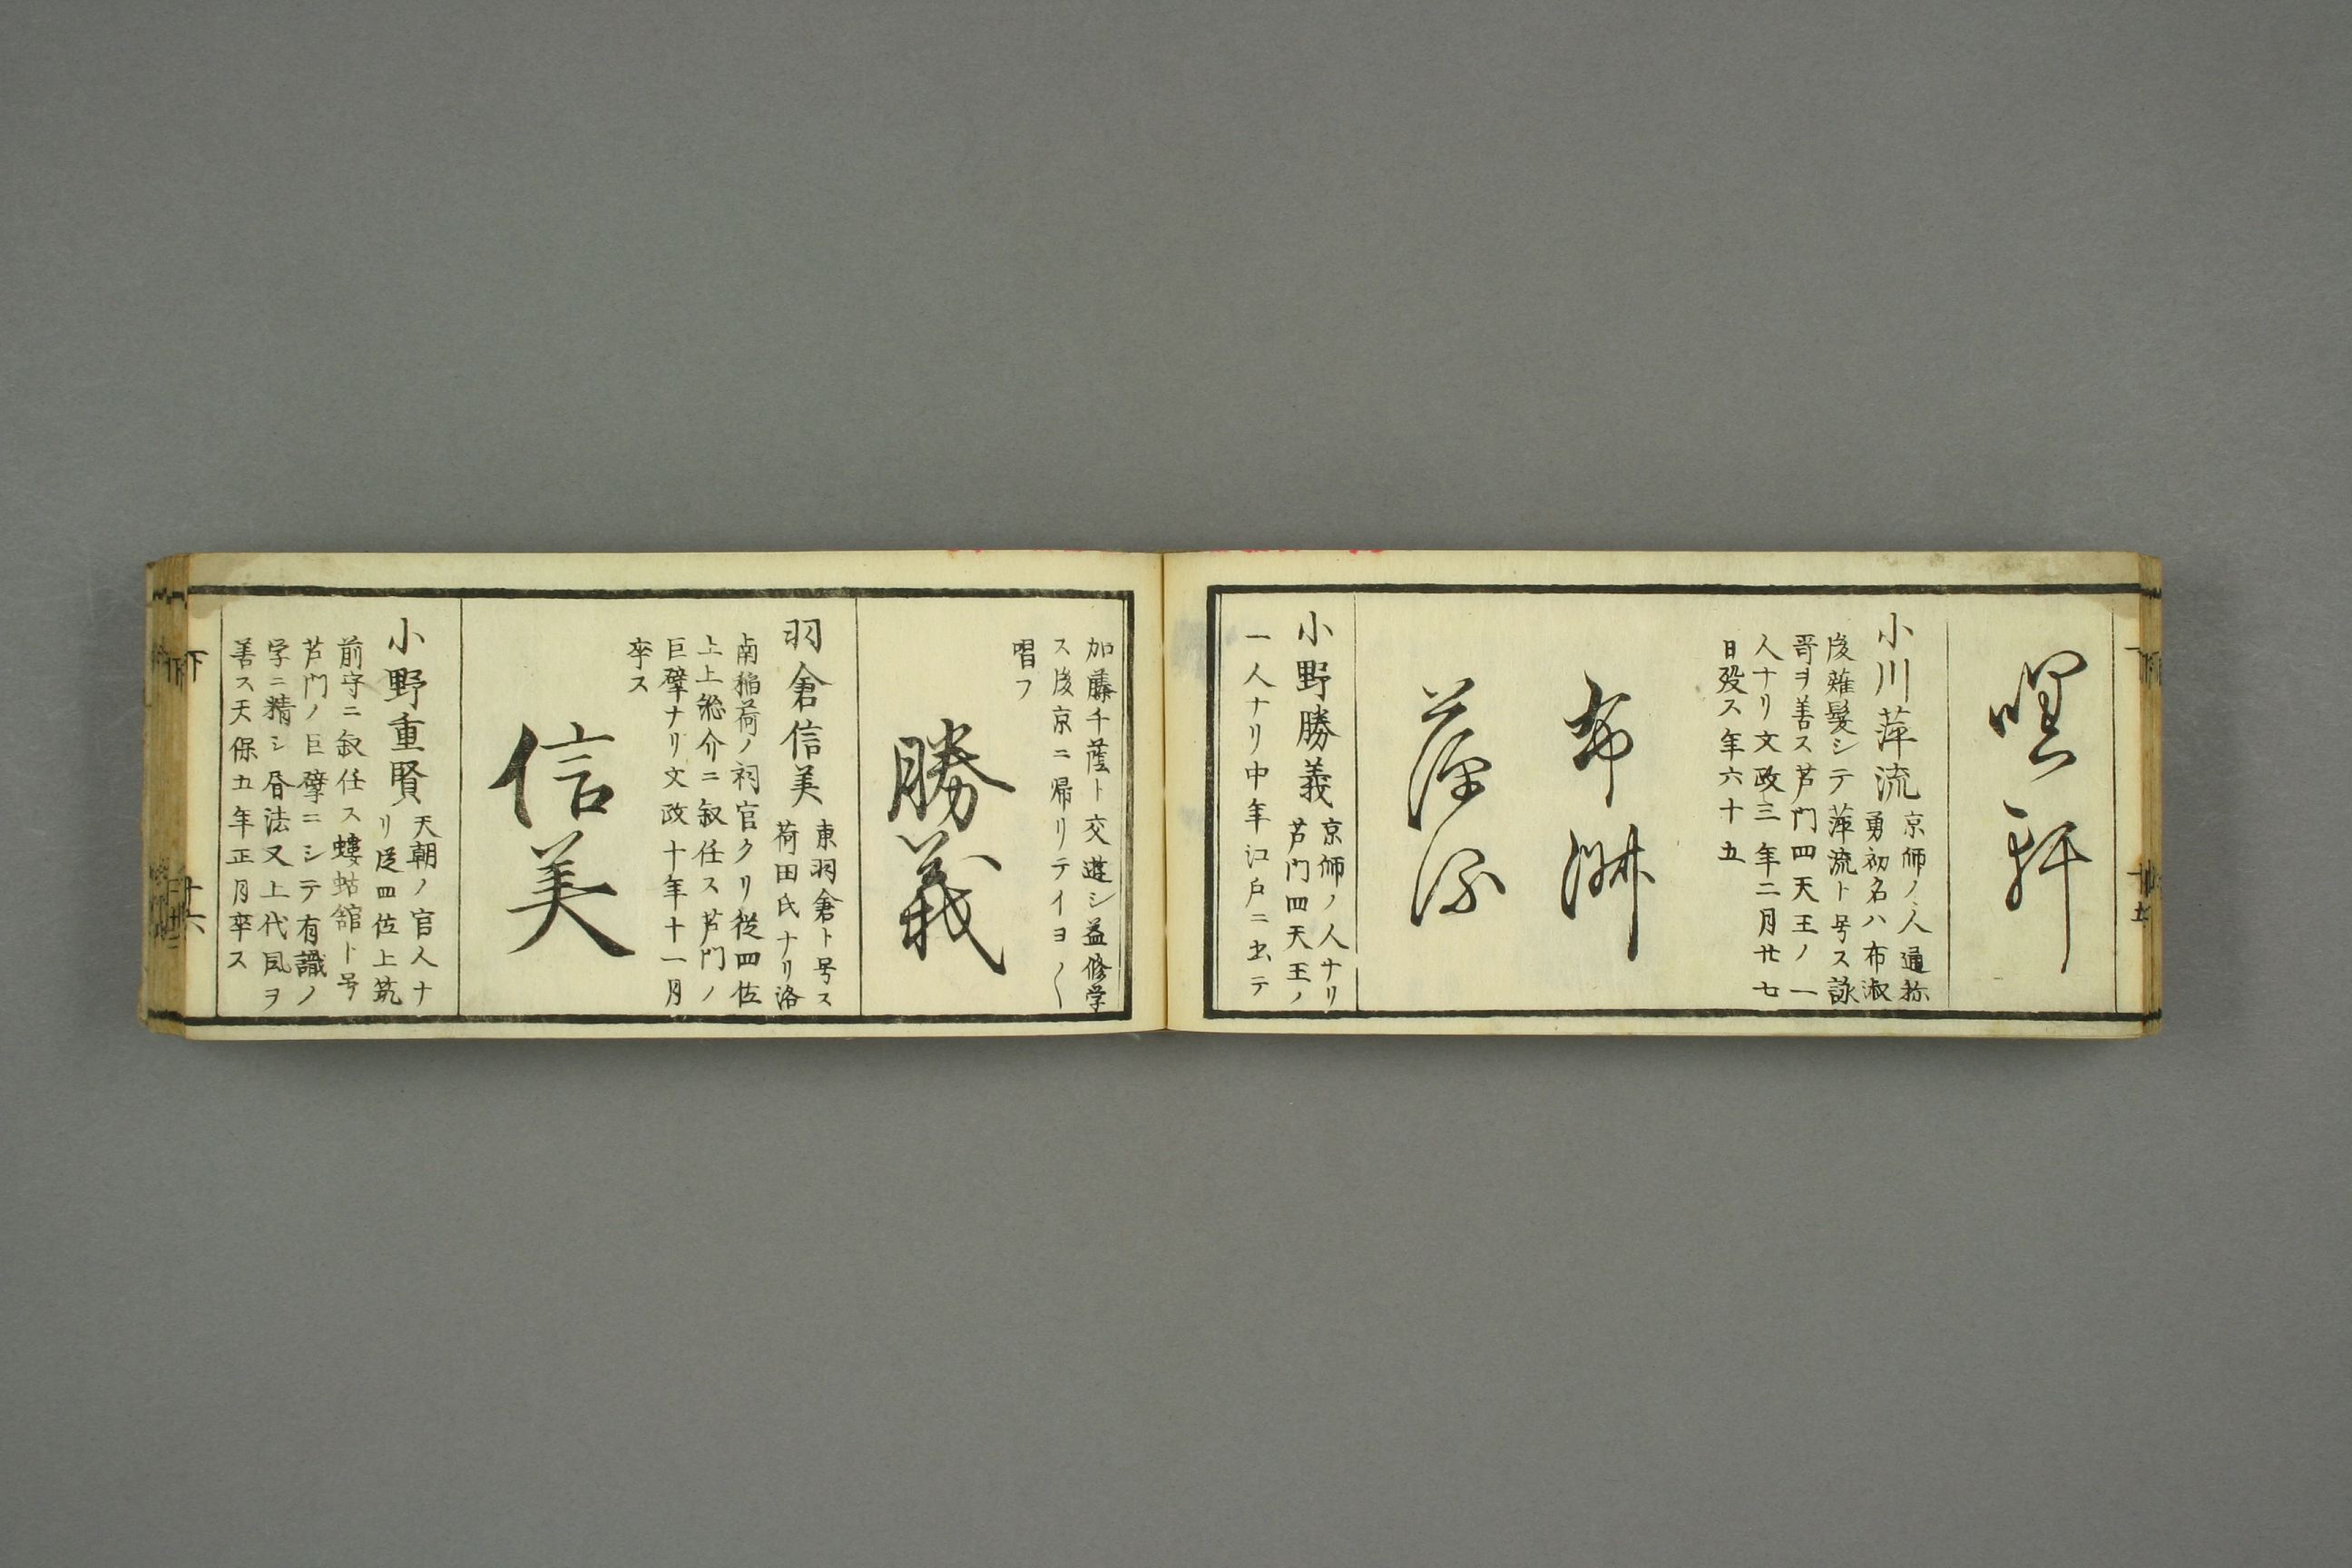 嘿軒
小川萍流
京師ノ人通称
勇初名ハ布淑
後薙髪シテ萍流ト号ス詠
哥ヲ善ス芦門四天王ノ一
人ナリ文政三年二月廿七
日歿ス年六十五
布淑
萍流
小野勝義
京師ノ人ナリ
芦門四天王ノ
一人ナリ中年江戸ニ出テ
加藤千蔭ト交遊シ益修学
ス後京ニ帰リテイヨ〱
唱フ
勝義
羽倉信美
東羽倉ト号ス
荷田氏ナリ洛
南稲荷ノ祠官タリ従四位
上上総介ニ叙任ス芦門ノ
巨擘ナリ文政十年十一月
卒ス
信美
小野重賢
天朝ノ官人ナ
リ従四位上筑
前守ニ叙任ス螻蛄舘ト号
芦門ノ巨擘ニシテ有識ノ
学ニ精シ昏法又上代風ヲ
善ス天保五年正月卒ス
下
十六